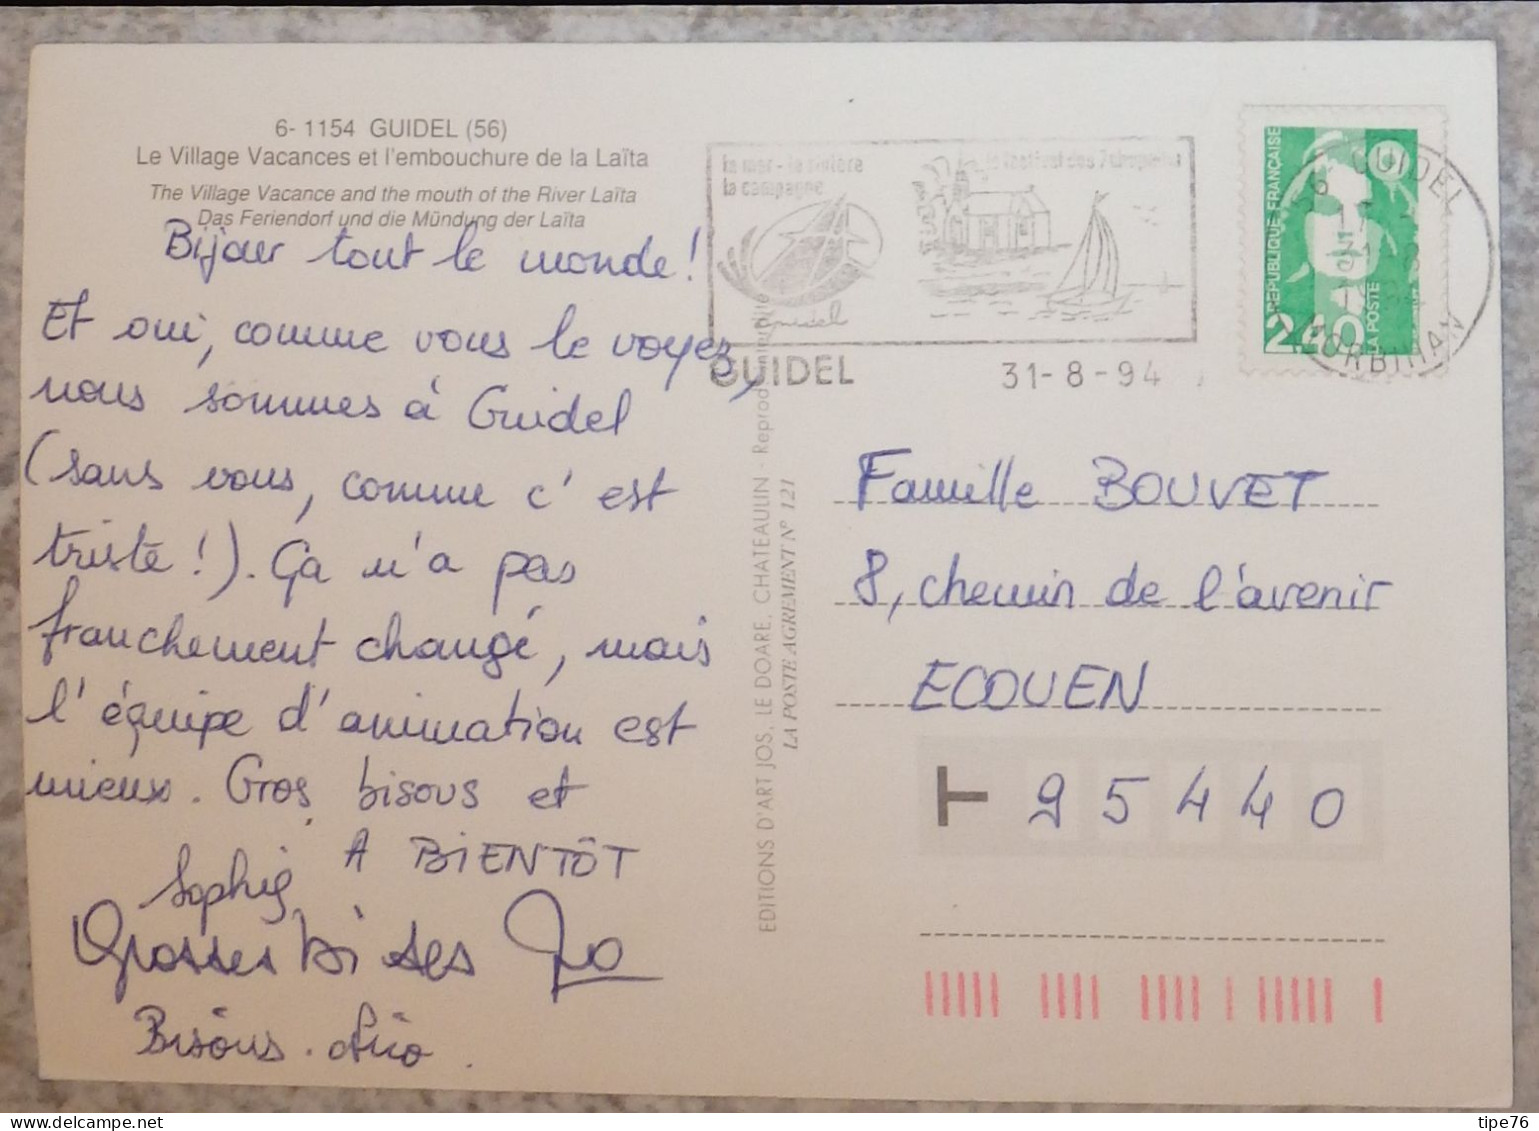 6- 1154 GUIDEL (56)
Le Village Vacances et l'embouchure de la Laïta
The Village Vacance and the mouth of the River Laïta
Das Feriendorf und die Mündung der Laïta
Bijour tout le monde!
Et oui, comme vous le voyez,
nous sommes à Guidel
(sans vous, comme c'est
triste!). Ça n'a pas
franchement changé, mais
l'équipe d'animation est
mieux. Gros bisous et
A BIENTÔT
Sophie
Grosses bises Jo
Bisous.
EDITIONS D'ART JOS, LE DOARE, CHATEAULIN - Reprod. interdite
LA POSTE AGREMENT N° 121
la mer - la rivière
la campagne
le festival des 7 chapelles
guidel
GUIDEL
31-8-94
REPUBLIQUE FRANÇAISE
2.40
LA POSTE
56 GUIDEL
MORBIHAN
Famille BOUVET
8, chemin de l'avenir
ECOUEN
95440
delcampe.net
tipe76